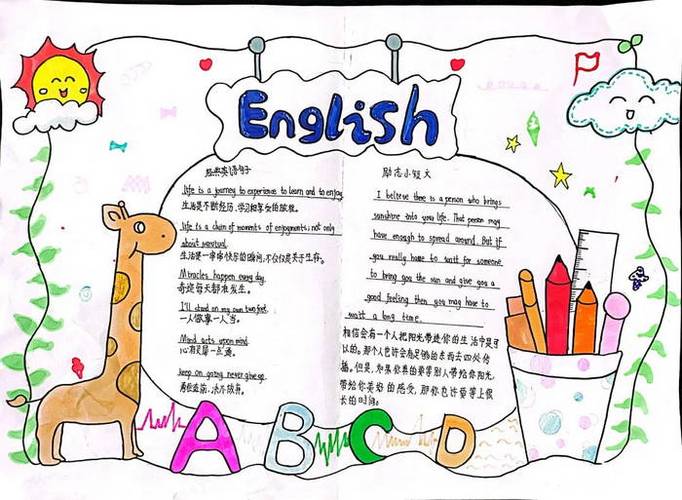 English
经典英语句子
life is a journey to experience to learn and to enjoy
生活是不断经历、学习和享受的旅程。
life is a chain of moments of enjoyments; not only
about survival
生活是一串串快乐的瞬间,不仅仅是关于生存。
Miracles happen every day
奇迹每天都在发生。
I'll stand on my own two feet
一人做事一人当。
Mind acts upon mind
心有灵犀一点通。
keep on going never give up
勇往直前,决不放弃。
励志小短文
I believe there is a person who brings
sunshine into your life. That person may
have enough to spread around. But if
you really have to wait for someone
to bring you the sun and give you a
good feeling then you may have to
wait a long time.
相信会有一个人把阳光带进你的生活中是可
以的。那个人也许会有足够的东西去四处传
播。但是,如果你真的要等别人带给你阳光,
带给你美好的感受,那你也许要等上很
长的时间。
A B C D